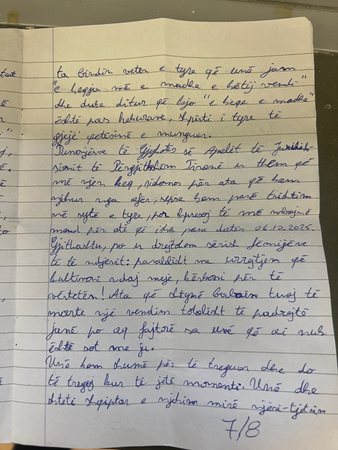 ta bindin veten e tyre që unë jam
"e keqja më e madhe e këtij vendi"
dhe duke ditur që kjo "e keqe e madhe"
është pas hekurave, shpirti i tyre të
gjejë qetësinë e munguar.
Punonjësve të Gjykatës së Apelit të Juridik-
sionit të Përgjithshëm Tiranë u them që
më vjen keq, sidomos për ata që kam
njohur nga afër, sepse kam parë trishtim
në sytë e tyre, por kuptoj të më mbajnë
mend për atë që isha para datës 06.10.2025.
Gjithashtu, po ju drejtohem sërish fëmijëve
të të ndjerit: paralelisht me urrejtjen që
kultivoni ndaj meje, kërkoni për të
vërtetën! Ata që shtynë babain tuaj të
merrte një vendim totalisht të padrejtë
janë po aq fajtorë sa unë që ai nuk
është sot me ju.
Unë kam shumë për të treguar dhe do
të tregoj kur të jetë momenti. Unë dhe
shteti shqiptar e njohim mirë njëri-tjetrin
7/8